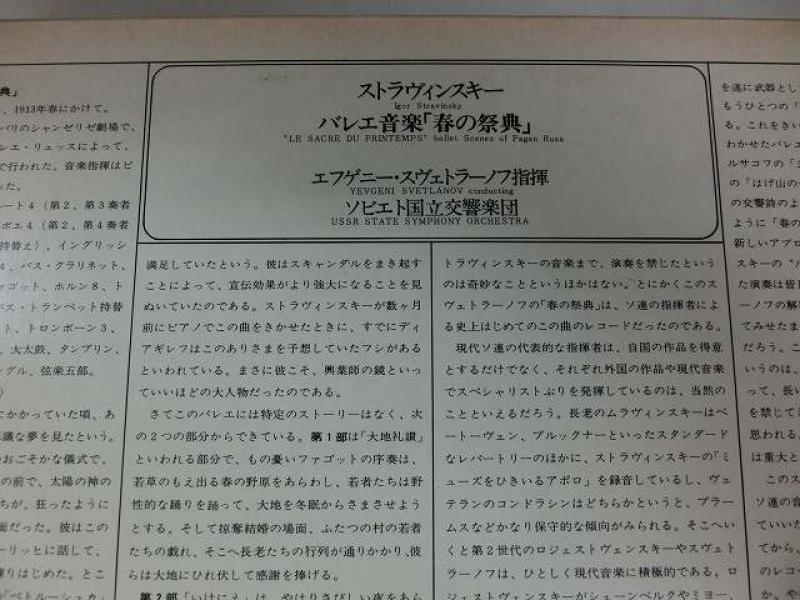 ストラヴィンスキー
Igor Stravinsky
バレエ音楽「春の祭典」
"LE SACRE DU PRINTEMPS" ballet Scenes of Pagan Russ
エフゲニー・スヴェトラーノフ指揮
YEVGENI SVETLANOV conducting
ソビエト国立交響楽団
USSR STATE SYMPHONY ORCHESTRA
典」
、1913年春にかけて。
パリのシャンゼリゼ劇場で、
シエ・リュッスによって、
で行われた。音楽指揮はピ
った。
ルート4（第2、第3奏者
ボエ4（第2、第4奏者
持替え）、イングリッシ
4、バス・クラリネット、
ァゴット、ホルン8、ト
バス・トランペット持替
ット、トロンボーン3、
、大太鼓、タンブリン、
ングル、弦楽五部。
）
にかかっていた頃、あ
議な夢を見たという。
かおごそかな儀式で、
の前で、太陽の神の
ちが、狂ったように
面だった。彼はこの
ーリッヒに話して、
練りはじめた。とこ
「ペトルーシュカ」
満足していたという。彼はスキャンダルをまき起す
ことによって、宣伝効果がより強大になることを見
ぬいていたのである。ストラヴィンスキーが数ヶ月
前にピアノでこの曲をきかせたときに、すでにディ
アギレフはこのありさまを予想していたフシがある
といわれている。まさに彼こそ、興業師の鏡といっ
ていいほどの大人物だったのである。
さてこのバレエには特定のストーリーはなく、次
の2つの部分からできている。第1部は「大地礼讃」
といわれる部分で、もの憂いファゴットの序奏は、
若草のもえ出る春の野原をあらわし、若者たちは野
性的な踊りを踊って、大地を冬眠からさまさせよう
とする。そして掠奪結婚の場面、ふたつの村の若者
たちの戯れ、そこへ長老たちの行列が通りかかり、彼
らは大地にひれ伏して感謝を捧げる。
第2部「いけにえ」は、やはりさびしい夜をあら
トラヴィンスキーの音楽まで、演奏を禁じたという
のは奇妙なことというほかはない。とにかくこのス
ヴェトラーノフの「春の祭典」は、ソ連の指揮者によ
る史上はじめてのこの曲のレコードだったのである。
現代ソ連の代表的な指揮者は、自国の作品を得意
とするだけでなく、それぞれ外国の作品や現代音楽
でスペシャリストぶりを発揮しているのは、当然の
ことといえるだろう。長老のムラヴィンスキーはベ
ートーヴェン、ブルックナーといったスタンダード
なレパートリーのほかに、ストラヴィンスキーの「ミ
ューズをひきいるアポロ」を録音しているし、ヴェ
テランのコンドラシンはどちらかというと、ブラー
ムスなどかなり保守的な傾向がみられる。そこへい
くと第2世代のロジェストヴェンスキーやスヴェト
ラーノフは、ひとしく現代音楽に積極的である。ロ
ジェストヴェンスキーがシェーンベルクやミヨー、
を遂に武器とし
もうひとつの「
る。これをきい
わかせたバレエ
ルサコフの「
の「はげ山の
の交響詩のよ
ように「春の
新しいアプロ
スキーの
た演奏は皆
ーノフの解
てみせたま
だろう。こ
いうのは、
って、長い
を禁じて
思われる
は重大と
このス
ソ連の音
ていいた
てから、
のレコー
か。や